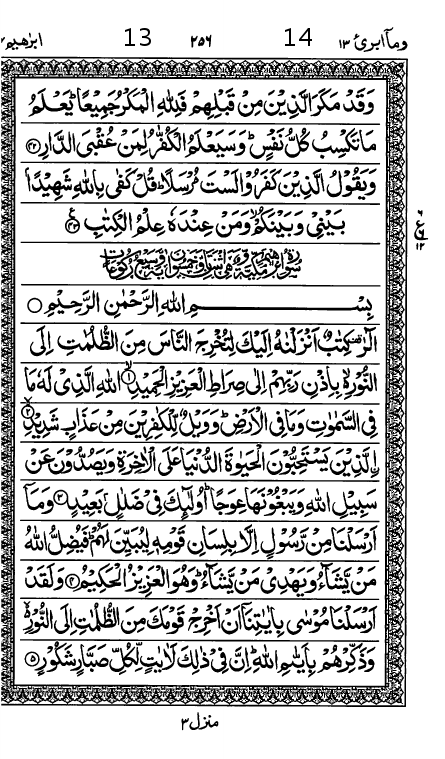 ومآ ابرئ ۱۳ 14 ۲۵۶ 13 ابرٰهیم
وَقَدْ مَكَرَ الَّذِيْنَ مِنْ قَبْلِهِمْ فَلِلّٰهِ الْمَكْرُ جَمِيْعًا ؕ يَعْلَمُ
مَا تَكْسِبُ كُلُّ نَفْسٍ ؕ وَسَيَعْلَمُ الْكُفّٰرُ لِمَنْ عُقْبَى الدَّارِ ﴿۴۲﴾
وَيَقُوْلُ الَّذِيْنَ كَفَرُوْا لَسْتَ مُرْسَلًا ؕ قُلْ كَفٰى بِاللّٰهِ شَهِيْدًۢا
بَيْنِىْ وَبَيْنَكُمْ ۙ وَمَنْ عِنْدَهٗ عِلْمُ الْكِتٰبِ ﴿۴۳﴾
بِسْمِ اللّٰهِ الرَّحْمٰنِ الرَّحِيْمِ
الٓرٰ كِتٰبٌ اَنْزَلْنٰهُ اِلَيْكَ لِتُخْرِجَ النَّاسَ مِنَ الظُّلُمٰتِ اِلَى
النُّوْرِ ۙ بِاِذْنِ رَبِّهِمْ اِلٰى صِرَاطِ الْعَزِيْزِ الْحَمِيْدِ ﴿۱﴾ اللّٰهِ الَّذِىْ لَهٗ مَا
فِى السَّمٰوٰتِ وَمَا فِى الْاَرْضِ ؕ وَوَيْلٌ لِّلْكٰفِرِيْنَ مِنْ عَذَابٍ شَدِيْدِ ﴿۲﴾
ۨالَّذِيْنَ يَسْتَحِبُّوْنَ الْحَيٰوةَ الدُّنْيَا عَلَى الْاٰخِرَةِ وَيَصُدُّوْنَ عَنْ
سَبِيْلِ اللّٰهِ وَيَبْغُوْنَهَا عِوَجًا ؕ اُولٰٓئِكَ فِىْ ضَلٰلٍۢ بَعِيْدٍ ﴿۳﴾ وَمَاۤ
اَرْسَلْنَا مِنْ رَّسُوْلٍ اِلَّا بِلِسَانِ قَوْمِهٖ لِيُبَيِّنَ لَهُمْ ؕ فَيُضِلُّ اللّٰهُ
مَنْ يَّشَآءُ وَيَهْدِىْ مَنْ يَّشَآءُ ؕ وَهُوَ الْعَزِيْزُ الْحَكِيْمُ ﴿۴﴾ وَلَقَدْ
اَرْسَلْنَا مُوْسٰى بِاٰيٰتِنَاۤ اَنْ اَخْرِجْ قَوْمَكَ مِنَ الظُّلُمٰتِ اِلَى النُّوْرِ ۙ
وَذَكِّرْهُمْ بِاَيّٰىمِ اللّٰهِ ؕ اِنَّ فِىْ ذٰلِكَ لَاٰيٰتٍ لِّكُلِّ صَبَّارٍ شَكُوْرٍ ﴿۵﴾
منزل ۳